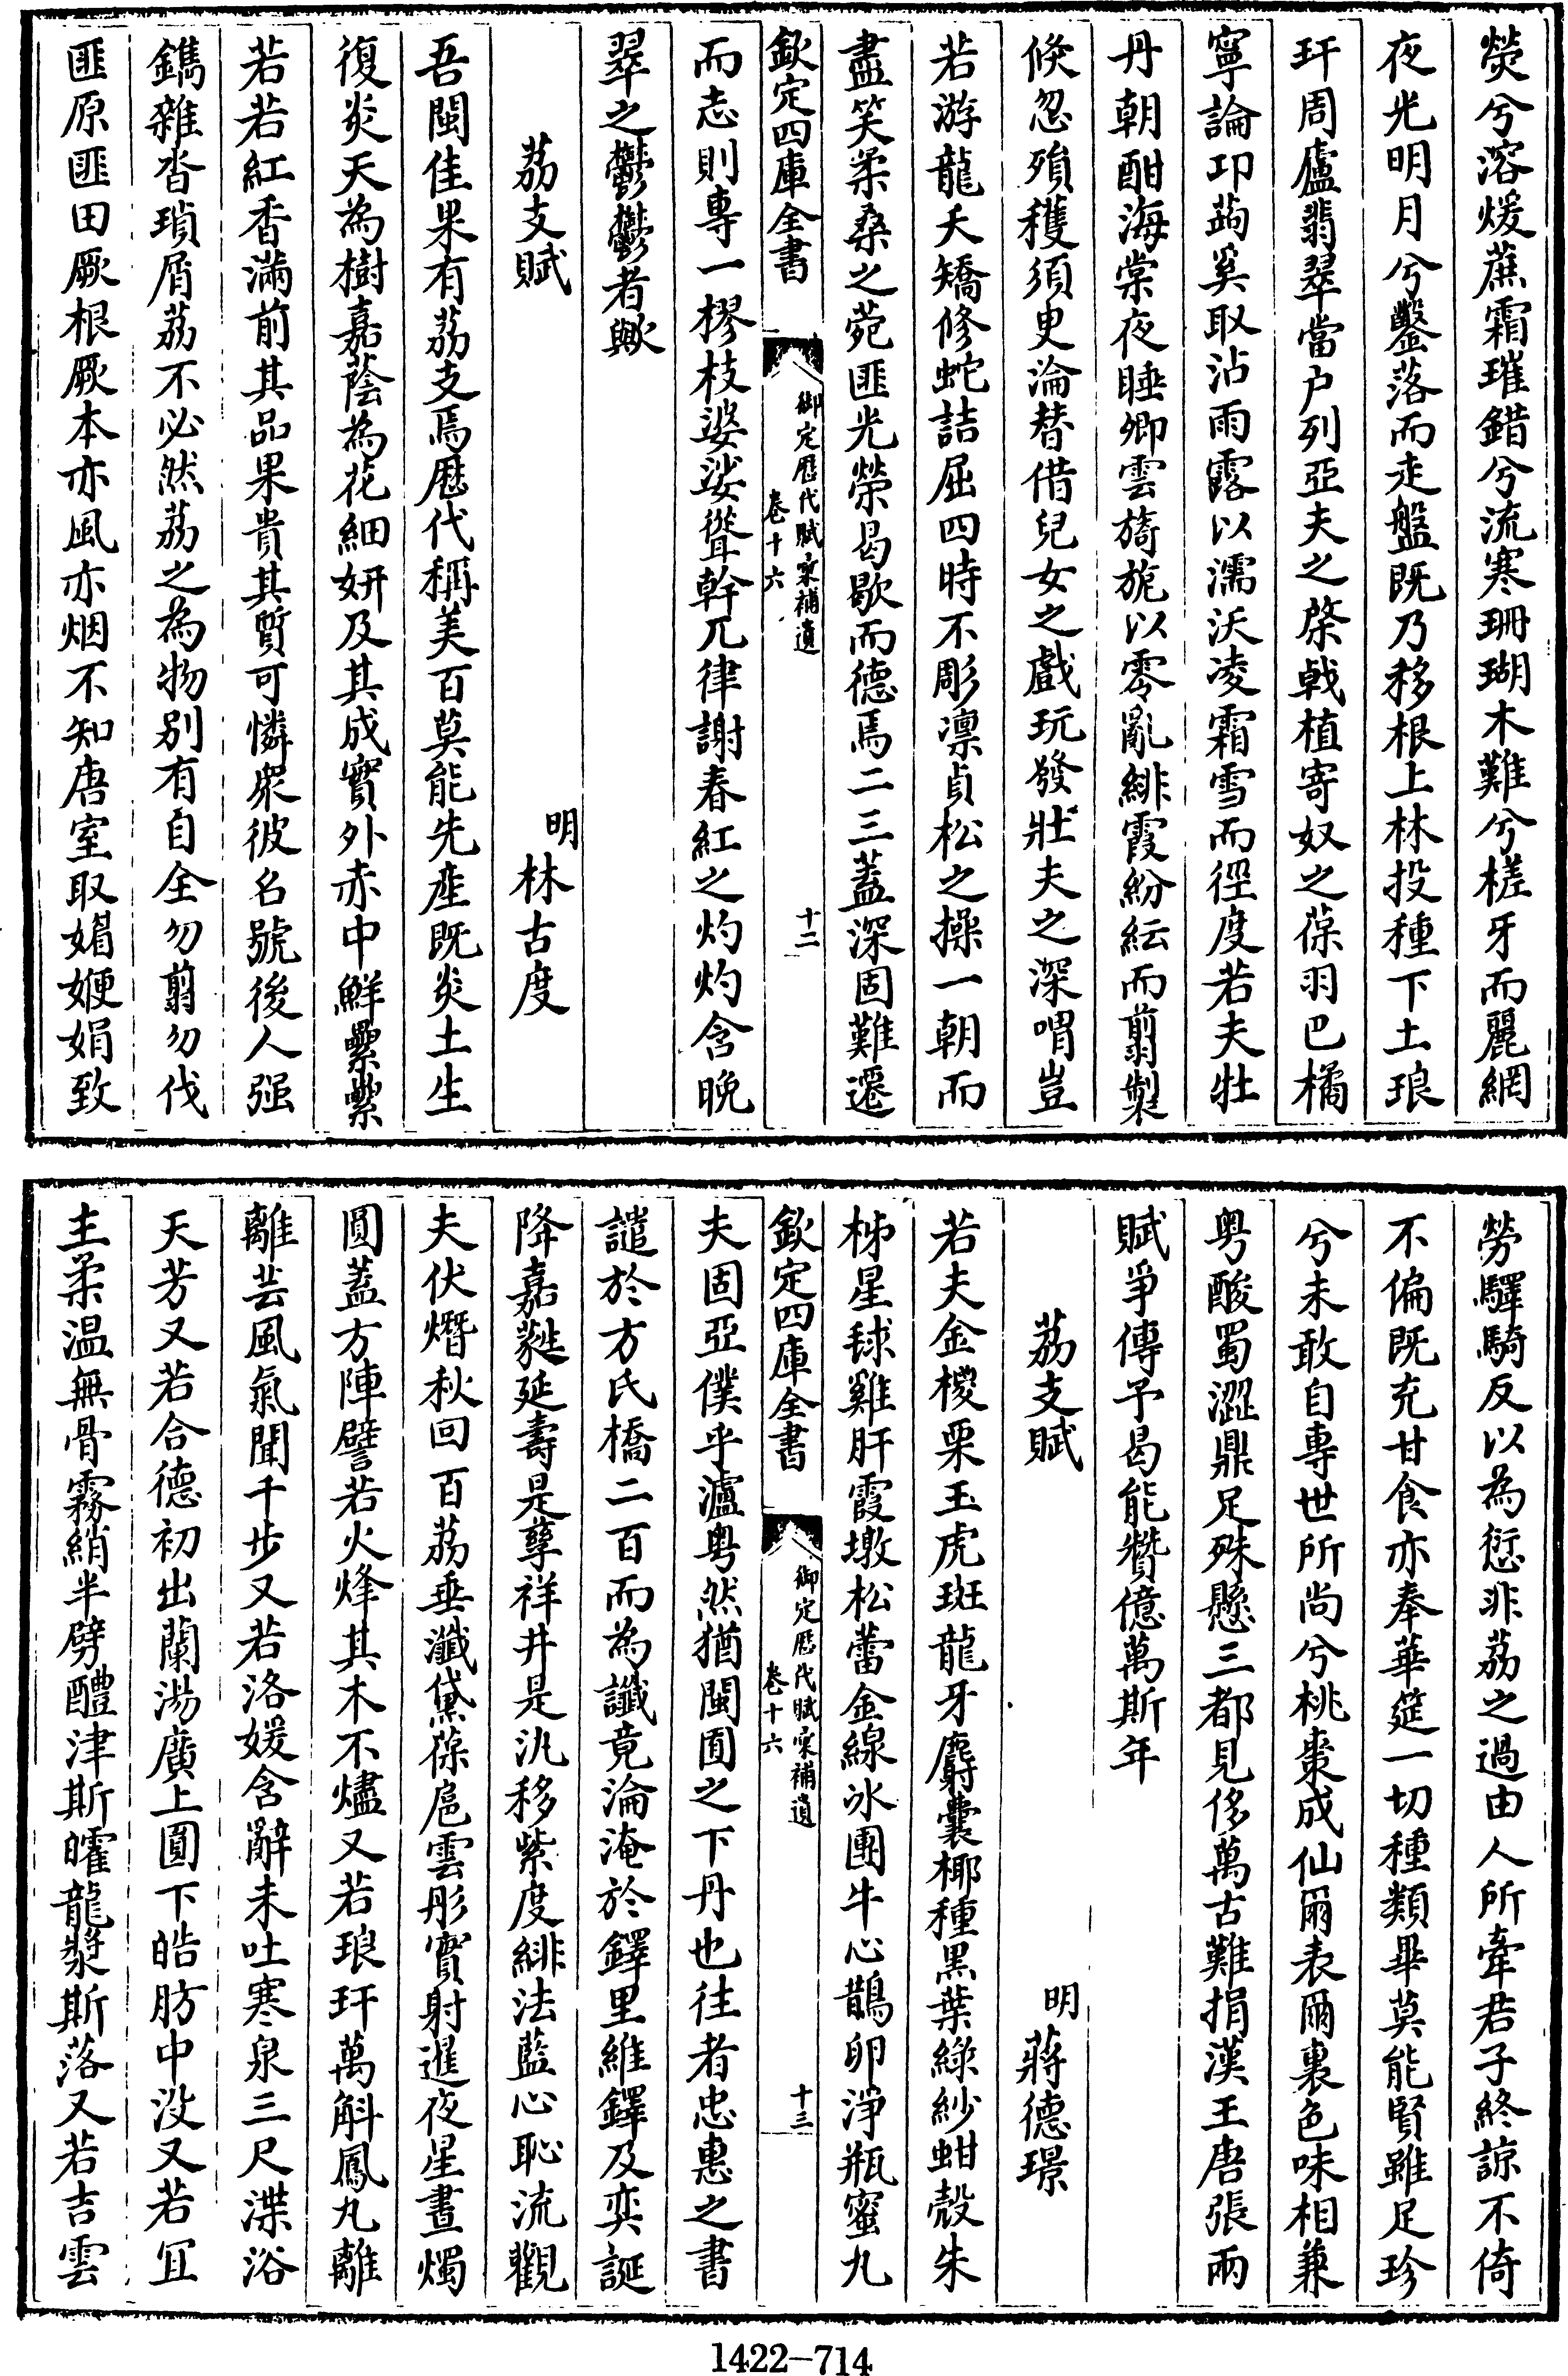 熒兮溶煖蔗霜璀錯兮流寒珊瑚木難兮槎牙而麗網
夜光明月兮鑿落而走盤既乃移根上林投種下土琅
玕周廬翡翠當户列亞夫之棨戟植寄奴之葆羽巴橘
寧論邛蒟奚取沾雨露以濡沃凌霜雪而徑度若夫牡
丹朝酣海棠夜睡卿雲旖旎以零亂緋霞紛紜而翦製
倐忽殞穫須臾淪替借兒女之戲玩發壯夫之深喟豈
若游龍夭矯修蛇詰屈四時不彫凛貞松之操一朝而
盡笑柔桑之菀匪光榮曷歇而德焉二三蓋深固難遷
欽定四庫全書
御定歷代賦彚補遺
卷十六
十二
而志則專一樛枝婆娑聳幹兀律謝春紅之灼灼含晚
翠之鬱鬱者歟
荔支賦
明 林古度
吾閩佳果有荔支焉歷代稱美百莫能先産既炎土生
復炎天為樹嘉蔭為花細妍及其成實外赤中鮮纍纍
若若紅香滿前其品果貴其質可憐衆彼名號後人强
鐫雜沓瑣屑荔不必然荔之為物别有自全勿翦勿伐
匪原匪田厥根厥本亦風亦烟不知唐室取媚㛹娟致
勞驛騎反以為愆非荔之過由人所牽君子終諒不倚
不偏既充甘食亦奉華筵一切種類畢莫能賢雖足珍
兮未敢自專世所尚兮桃棗成仙爾表爾裏色味相兼
粤酸蜀澀鼎足殊懸三都見侈萬古難捐漢王唐張兩
賦爭傳予曷能贊億萬斯年
荔支賦
明 蔣德璟
若夫金㮨栗玉虎斑龍牙麝囊椰種黒葉緑紗蚶殻朱
柹星毬雞肝霞墩松蕾金線冰團牛心鵲卵淨瓶蜜丸
欽定四庫全書
御定歷代賦彚補遺
卷十六
十三
夫固亞僕乎瀘粤然猶閩囿之下丹也往者忠惠之書
譴於方氏橋二百而為讖竟淪淹於鐸里維鐸及奕誕
降嘉蕤延壽是孽祥井是氿移紫度緋法藍心恥流觀
夫伏熸秋回百荔垂瀸黛葆扈雲彤實射暹夜星晝燭
圓蓋方陣譬若火烽其木不燼又若琅玕萬斛鳳丸離
離芸風氣聞千步又若洛媛含辭未吐寒泉三尺渫浴
天芳又若合德初出蘭湯廣上圓下皓肪中沒又若冝
主柔温無骨霧綃半劈醴津斯㿥龍漿斯落又若吉雲
1422-714